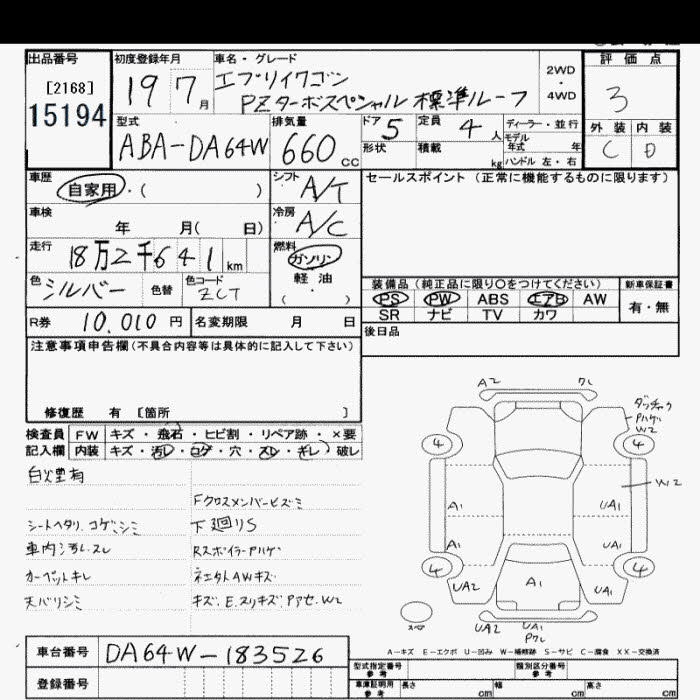 出品番号
[2168]
15194
初度登録年月
19 7月
車名・グレード
エブリイワゴン
PZターボスペシャル 標準ルーフ
2WD
・
4WD
評価点
3
外装 内装
C D
型式
ABA-DA64W
排気量
660 cc
ドア 5
定員 4人
形状
積載 kg
ディーラー・並行
モデル年式 年
ハンドル 左・右
車歴
自家用・( )
シフト
A/T
セールスポイント(正常に機能するものに限ります)
車検
年 月( 日)
冷房
A/C
走行
18万2千641km
燃料
ガソリン
軽油
( ・ )
色
シルバー
色替
色コード
ZCT
装備品(純正品に限り〇をつけてください)
新車保証書
PS PW ABS エアB AW
SR ナビ TV カワ
有・無
R券 10,010円
名変期限 月 日
後日品
注意事項申告欄(不具合内容等は具体的に記入して下さい)
修復歴 有 [箇所 ]
検査員記入欄
FW キズ・飛石・ヒビ割・リペア跡・×要
内装 キズ・汚レ・コゲ・穴・スレ・キレ・破レ
白火霊有
Fクロスメンバーヒズミ
シートヘタリ、コゲ、シミ
下廻りS
車内汚レ、スレ
RスポイラーPハゲ
カーペットキレ
ネエタトAWキズ
天バリシミ
キズ、E、スリキズ、Pアセ、W2
A2 フレ
Pハゲ
W2
4 4
W2
A1 UA1
A1 UA1
4 4
UA2 A1 UA1
スペア
UA2 UA1
Pフレ
A-キズ E-エクボ U-凹み W-補修跡 S-サビ C-腐食 XX-交換済
車台番号 DA64W-183526
登録番号
型式指定番号 参考
類別区分番号 参考
車庫証明用 参考
長さ cm
幅 cm
高さ cm